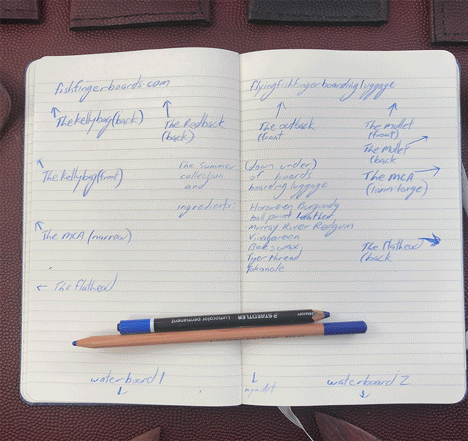 fishfingerboards.com
The kellybag (back)
The Redback
(back)
The kellybag (front)
The Summer
collection
and
ingredients:
The MCA (narrow)
The Flathead
waterboard 1
flyingfishfingerboardingluggage
The outback
(front
The mullet
(front)
The mullet
(back
(down under)
of boards
boarding luggage
The MCA
Horween Burgundy
ball point leather
Murray River Redgum
Vinegaroon
Beeswax
Tyger thread
The Flathead
(back
waterboard 2
STAEDTLER Lumocolor permanent